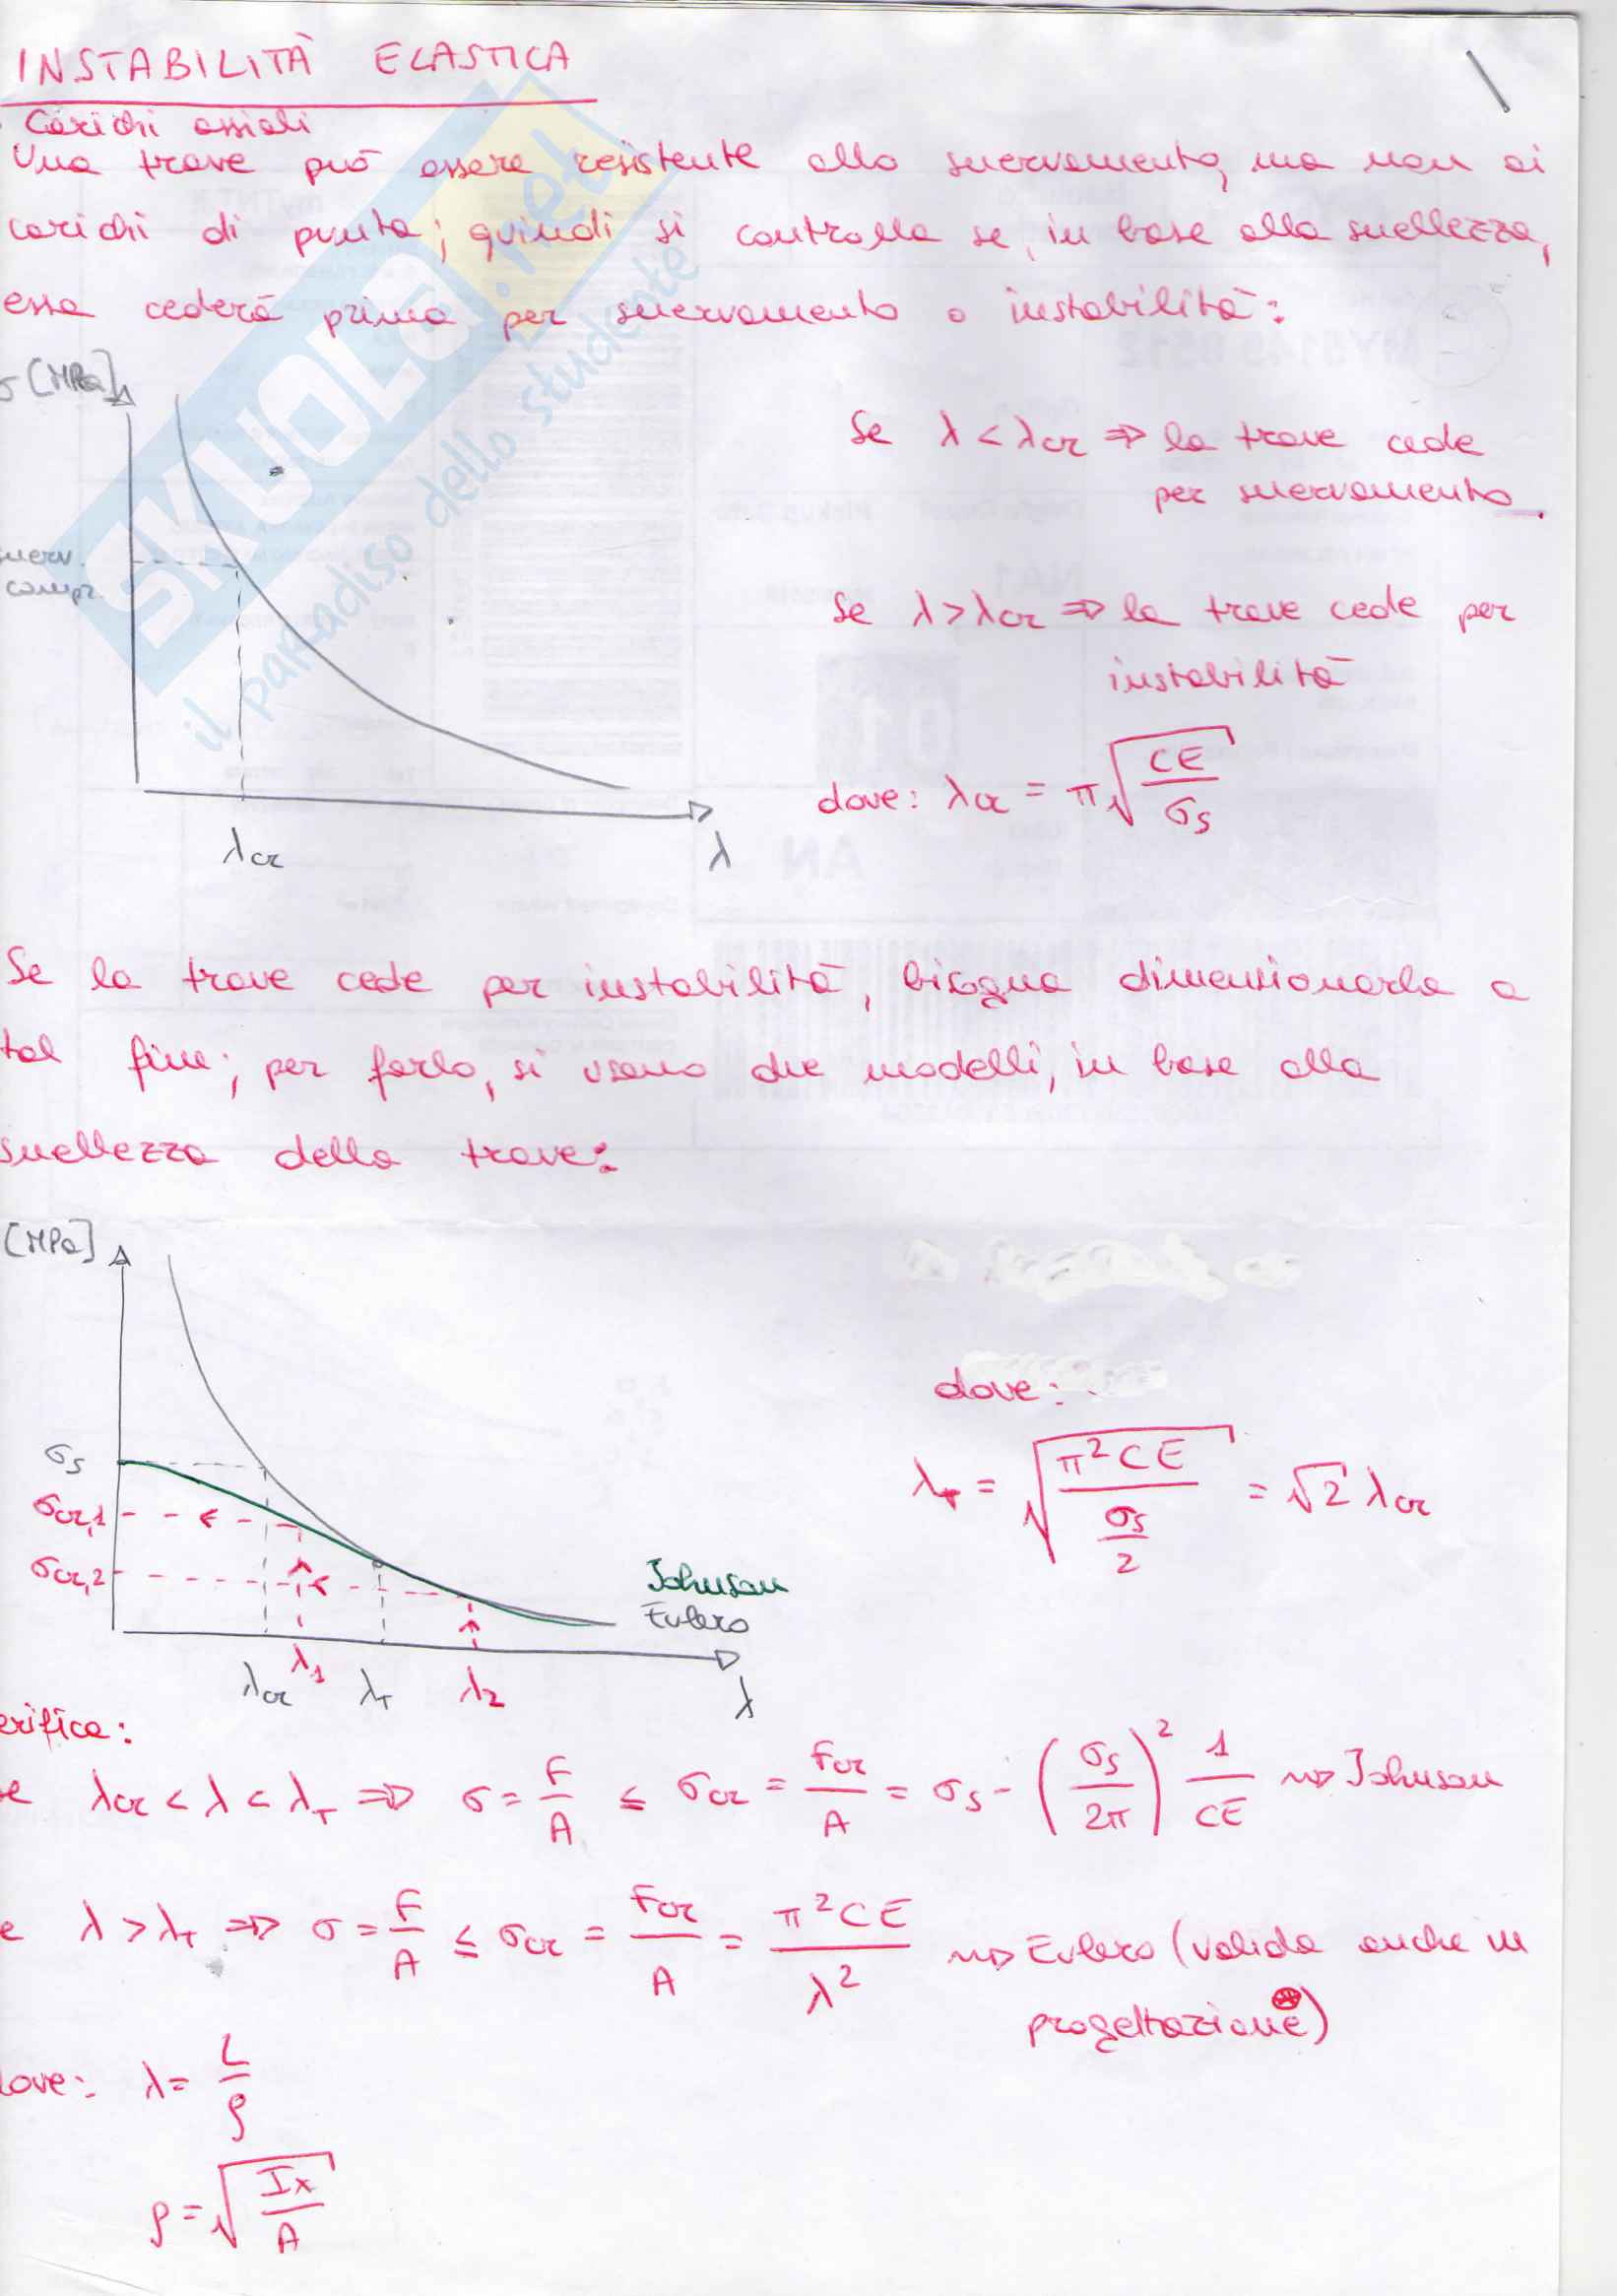 INSTABILITÀ ELASTICA
Carichi assiali
Una trave può essere resistente allo snervamento, ma non ai
carichi di punta; quindi si controlla se, in base alla snellezza,
essa cederà prima per snervamento o instabilità:
σ [MPa]
snerv.
compr.
λcr
λ
Se λ < λcr ⇒ la trave cede
per snervamento.
Se λ > λcr ⇒ la trave cede per
instabilità
dove: λcr = π√(CE/σs)
SKUOLA.net
il paradiso dello studente
Se la trave cede per instabilità, bisogna dimensionarla a
tal fine; per farlo, si usano due modelli, in base alla
snellezza della trave:
[MPa]
σs
σcr,1
σcr,2
Johnson
Eulero
λcr λ1 λT λ2 λ
dove:
λT = √(π²CE/(σs/2)) = √2 λcr
erifica:
e λcr < λ < λT ⇒ σ = F/A ≤ σcr = Fcr/A = σs - (σs/2π)² 1/CE ⇝ Johnson
e λ > λT ⇒ σ = F/A ≤ σcr = Fcr/A = π²CE/λ² ⇝ Eulero (valida anche in
progettazione)
ove: λ = L/ρ
ρ = √(Ix/A)